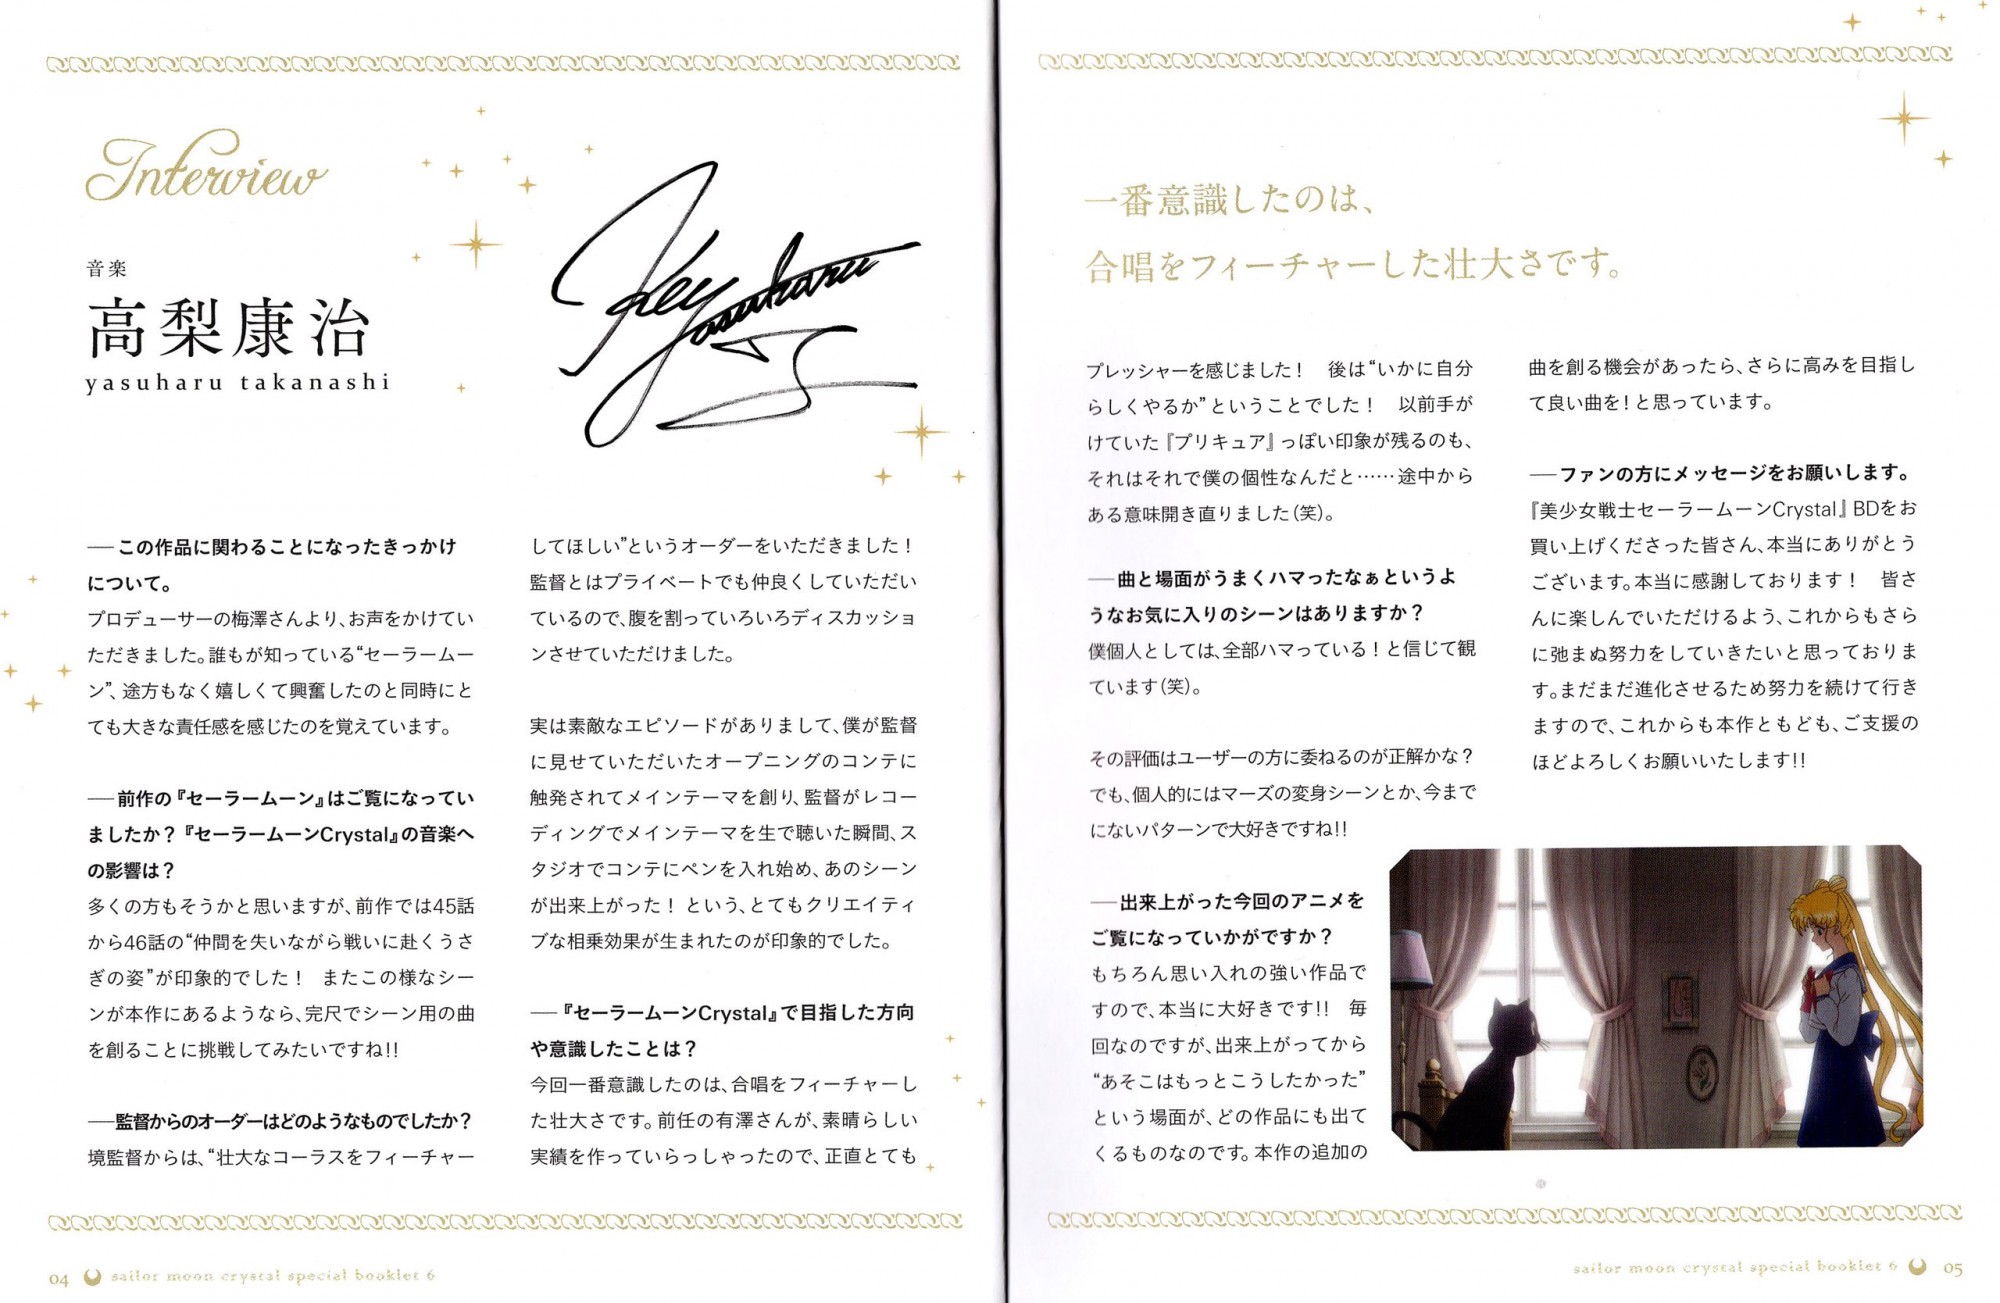 Interview
音楽
高梨康治
yasuharu takanashi
Key
Yasuharu
――この作品に関わることになったきっかけ
について。
プロデューサーの梅澤さんより、お声をかけてい
ただきました。誰もが知っている“セーラームー
ン”、途方もなく嬉しくて興奮したのと同時にと
ても大きな責任感を感じたのを覚えています。
――前作の『セーラームーン』はご覧になってい
ましたか？『セーラームーンCrystal』の音楽へ
の影響は？
多くの方もそうかと思いますが、前作では45話
から46話の“仲間を失いながら戦いに赴くうさ
ぎの姿”が印象的でした！　またこの様なシー
ンが本作にあるようなら、完尺でシーン用の曲
を創ることに挑戦してみたいですね!!
――監督からのオーダーはどのようなものでしたか？
境監督からは、“壮大なコーラスをフィーチャー
してほしい”というオーダーをいただきました！
監督とはプライベートでも仲良くしていただい
ているので、腹を割っていろいろディスカッショ
ンさせていただけました。
実は素敵なエピソードがありまして、僕が監督
に見せていただいたオープニングのコンテに
触発されてメインテーマを創り、監督がレコー
ディングでメインテーマを生で聴いた瞬間、ス
タジオでコンテにペンを入れ始め、あのシーン
が出来上がった！ という、とてもクリエイティ
ブな相乗効果が生まれたのが印象的でした。
――『セーラームーンCrystal』で目指した方向
や意識したことは？
今回一番意識したのは、合唱をフィーチャーし
た壮大さです。前任の有澤さんが、素晴らしい
実績を作っていらっしゃったので、正直とても
04 sailor moon crystal special booklet 6
一番意識したのは、
合唱をフィーチャーした壮大さです。
プレッシャーを感じました！　後は“いかに自分
らしくやるか”ということでした！　以前手が
けていた『プリキュア』っぽい印象が残るのも、
それはそれで僕の個性なんだと……途中から
ある意味開き直りました（笑）。
――曲と場面がうまくハマったなぁというよ
うなお気に入りのシーンはありますか？
僕個人としては、全部ハマっている！と信じて観
ています（笑）。
その評価はユーザーの方に委ねるのが正解かな？
でも、個人的にはマーズの変身シーンとか、今まで
にないパターンで大好きですね!!
――出来上がった今回のアニメを
ご覧になっていかがですか？
もちろん思い入れの強い作品で
すので、本当に大好きです!!　毎
回なのですが、出来上がってから
“あそこはもっとこうしたかった”
という場面が、どの作品にも出て
くるものなのです。本作の追加の
曲を創る機会があったら、さらに高みを目指し
て良い曲を！と思っています。
――ファンの方にメッセージをお願いします。
『美少女戦士セーラームーンCrystal』BDをお
買い上げくださった皆さん、本当にありがとう
ございます。本当に感謝しております！　皆さ
んに楽しんでいただけるよう、これからもさら
に弛まぬ努力をしていきたいと思っておりま
す。まだまだ進化させるため努力を続けて行き
ますので、これからも本作ともども、ご支援の
ほどよろしくお願いいたします!!
sailor moon crystal special booklet 6 05